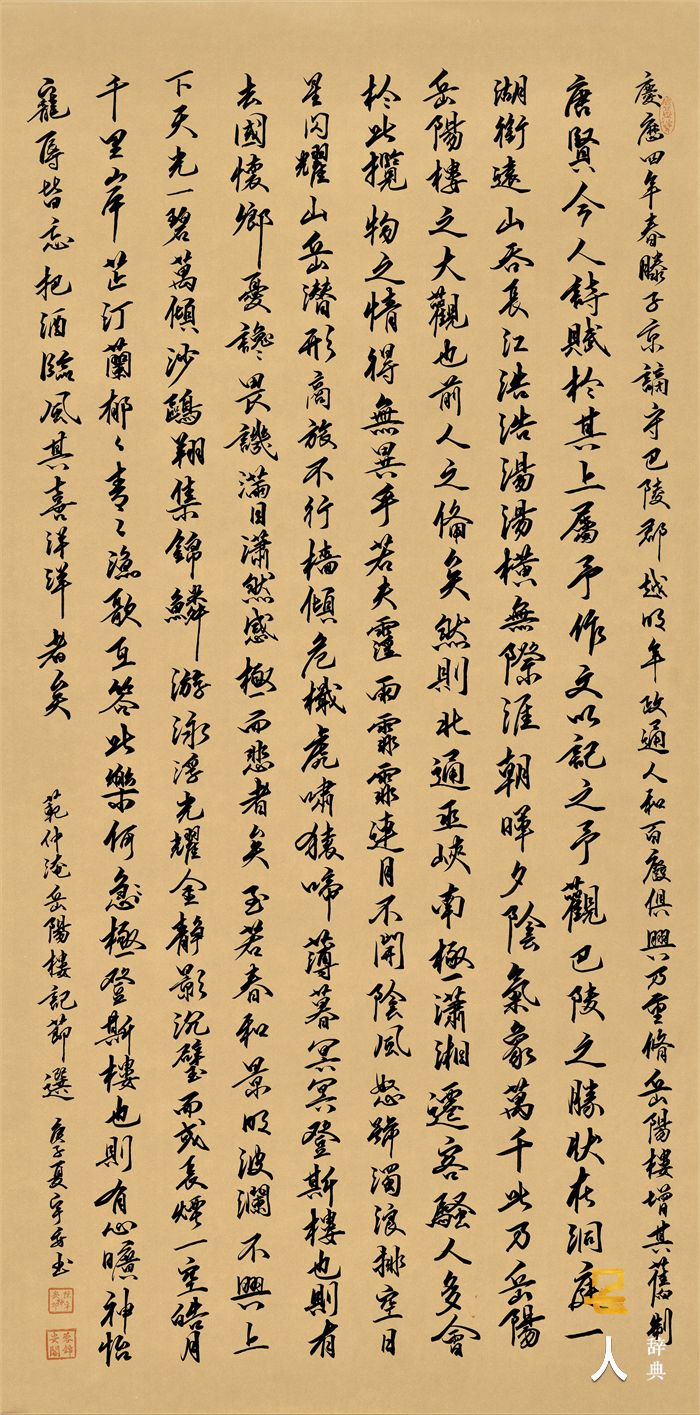 慶歷四年春滕子京謫守巴陵郡越明年政通人和百廢俱興乃重脩岳陽樓增其舊制
唐賢今人詩賦於其上屬予作文以記之予觀巴陵之勝狀在洞庭一
湖銜遠山吞長江浩浩湯湯橫無際涯朝暉夕陰氣象萬千此乃岳陽
岳陽樓之大觀也前人之俻矣然則北通巫峽南極瀟湘遷客騷人多會
於此攬物之情得無異乎若夫霪雨霏霏連月不開陰風怒號濁浪排空日
星閃耀山岳潛形商旅不行檣傾危檝虎嘯猿啼薄暮冥冥登斯樓也則有
去國懷鄉憂讒畏譏滿目瀟然感極而悲者矣至若春和景明波瀾不興上
下天光一碧萬傾沙鷗翔集錦鱗游泳浮光耀金靜影沉璧而或長煙一空皓月
千里岸芷汀蘭郁々青々漁歌互答此樂何急極登斯樓也則有心曠神怡
寵辱皆忘把酒臨風其喜洋洋者矣
範仲淹岳陽樓記節選
庚子夏宇安书
人
辞典